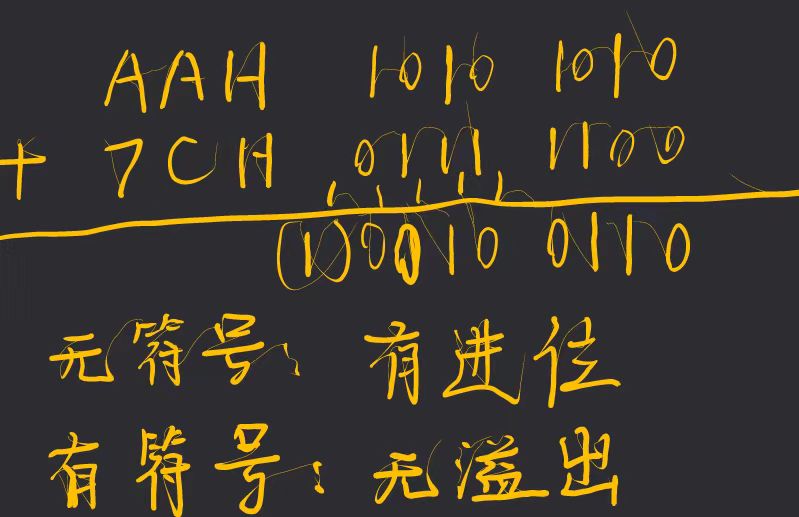 AAH 1010 1010
+ 7CH 0111 1100
(1)0010 0110
无符号: 有进位
有符号: 无溢出